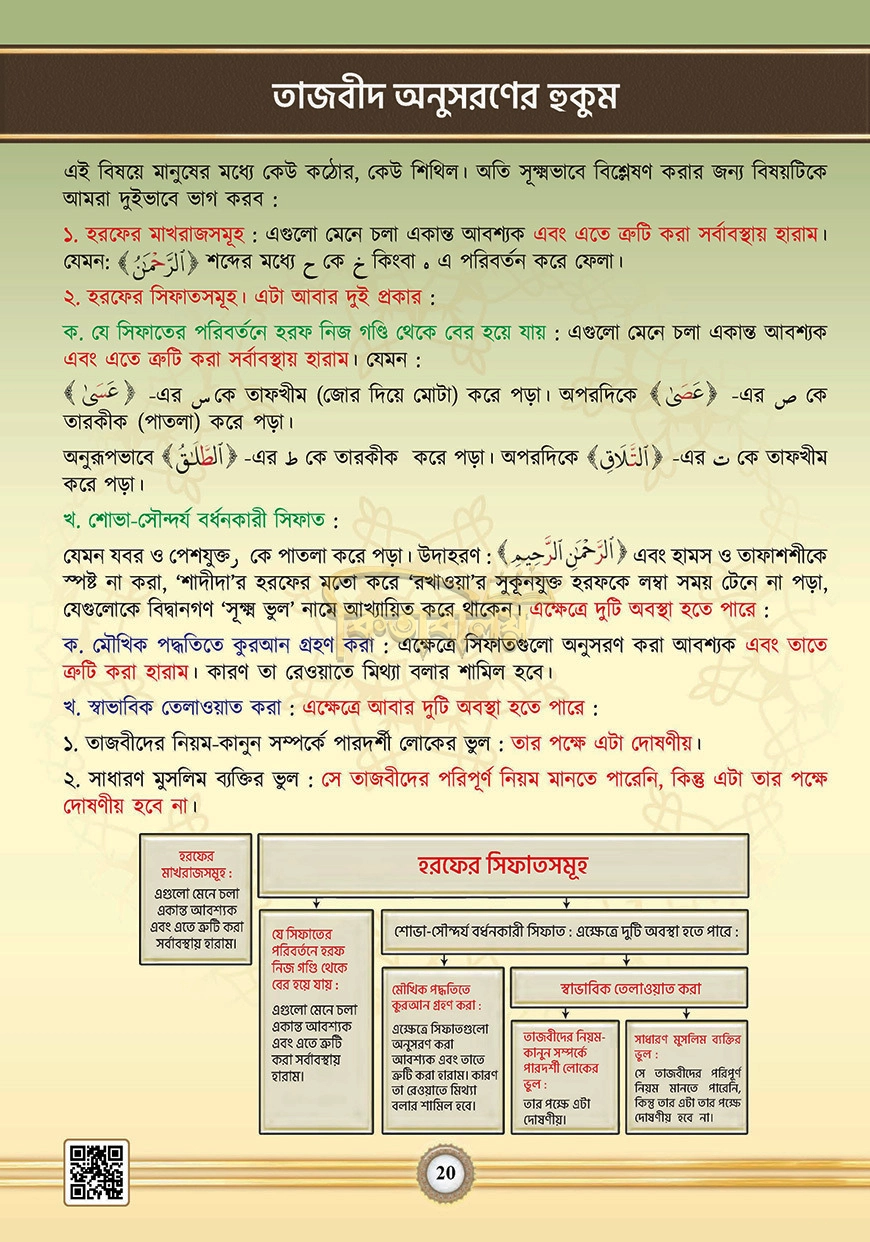 তাজবীদ অনুসরণের হুকুম
এই বিষয়ে মানুষের মধ্যে কেউ কঠোর, কেউ শিথিল। অতি সূক্ষ্মভাবে বিশ্লেষণ করার জন্য বিষয়টিকে
আমরা দুইভাবে ভাগ করব :
১. হরফের মাখরাজসমূহ : এগুলো মেনে চলা একান্ত আবশ্যক এবং এতে ত্রুটি করা সর্বাবস্থায় হারাম।
যেমন: ﴿اَلرَّحْمٰنُ﴾ শব্দের মধ্যে ح কে خ কিংবা ه এ পরিবর্তন করে ফেলা।
২. হরফের সিফাতসমূহ। এটা আবার দুই প্রকার :
ক. যে সিফাতের পরিবর্তনে হরফ নিজ গণ্ডি থেকে বের হয়ে যায় : এগুলো মেনে চলা একান্ত আবশ্যক
এবং এতে ত্রুটি করা সর্বাবস্থায় হারাম। যেমন :
﴿عَسَىٰ﴾ -এর س কে তাফখীম (জোর দিয়ে মোটা) করে পড়া। অপরদিকে ﴿عَصَىٰ﴾ -এর ص কে
তারকীক (পাতলা) করে পড়া।
অনুরূপভাবে ﴿اَلطَّلَٰقُ﴾ -এর ط কে তারকীক করে পড়া। অপরদিকে ﴿اَلتَّلَاقِ﴾ -এর ت কে তাফখীম
করে পড়া।
খ. শোভা-সৌন্দর্য বর্ধনকারী সিফাত :
যেমন যবর ও পেশযুক্ত ر কে পাতলা করে পড়া। উদাহরণ : ﴿اَلرَّحْمٰنِ اَلرَّحِيمِ﴾ এবং হামস ও তাফাশশীকে
স্পষ্ট না করা, ‘শাদীদা’র হরফের মতো করে ‘রখাওয়া’র সুকূনযুক্ত হরফকে লম্বা সময় টেনে না পড়া,
যেগুলোকে বিদ্বানগণ ‘সূক্ষ্ম ভুল’ নামে আখ্যায়িত করে থাকেন। এক্ষেত্রে দুটি অবস্থা হতে পারে :
ক. মৌখিক পদ্ধতিতে কুরআন গ্রহণ করা : এক্ষেত্রে সিফাতগুলো অনুসরণ করা আবশ্যক এবং তাতে
ত্রুটি করা হারাম। কারণ তা রেওয়াতে মিথ্যা বলার শামিল হবে।
খ. স্বাভাবিক তেলাওয়াত করা : এক্ষেত্রে আবার দুটি অবস্থা হতে পারে :
১. তাজবীদের নিয়ম-কানুন সম্পর্কে পারদর্শী লোকের ভুল : তার পক্ষে এটা দোষণীয়।
২. সাধারণ মুসলিম ব্যক্তির ভুল : সে তাজবীদের পরিপূর্ণ নিয়ম মানতে পারেনি, কিন্তু এটা তার পক্ষে
দোষণীয় হবে না।
হরফের
মাখরাজসমূহ :
এগুলো মেনে চলা
একান্ত আবশ্যক
এবং এতে ত্রুটি করা
সর্বাবস্থায় হারাম।
হরফের সিফাতসমূহ
যে সিফাতের
পরিবর্তনে হরফ
নিজ গণ্ডি থেকে
বের হয়ে যায় :
এগুলো মেনে চলা
একান্ত আবশ্যক
এবং এতে ত্রুটি
করা সর্বাবস্থায়
হারাম।
শোভা-সৌন্দর্য বর্ধনকারী সিফাত : এক্ষেত্রে দুটি অবস্থা হতে পারে :
মৌখিক পদ্ধতিতে
কুরআন গ্রহণ করা :
এক্ষেত্রে সিফাতগুলো
অনুসরণ করা
আবশ্যক এবং তাতে
ত্রুটি করা হারাম। কারণ
তা রেওয়াতে মিথ্যা
বলার শামিল হবে।
স্বাভাবিক তেলাওয়াত করা
তাজবীদের নিয়ম-
কানুন সম্পর্কে
পারদর্শী লোকের
ভুল :
তার পক্ষে এটা
দোষণীয়।
সাধারণ মুসলিম ব্যক্তির
ভুল :
সে তাজবীদের পরিপূর্ণ
নিয়ম মানতে পারেনি,
কিন্তু তার এটা তার পক্ষে
দোষণীয় হবে না।
20